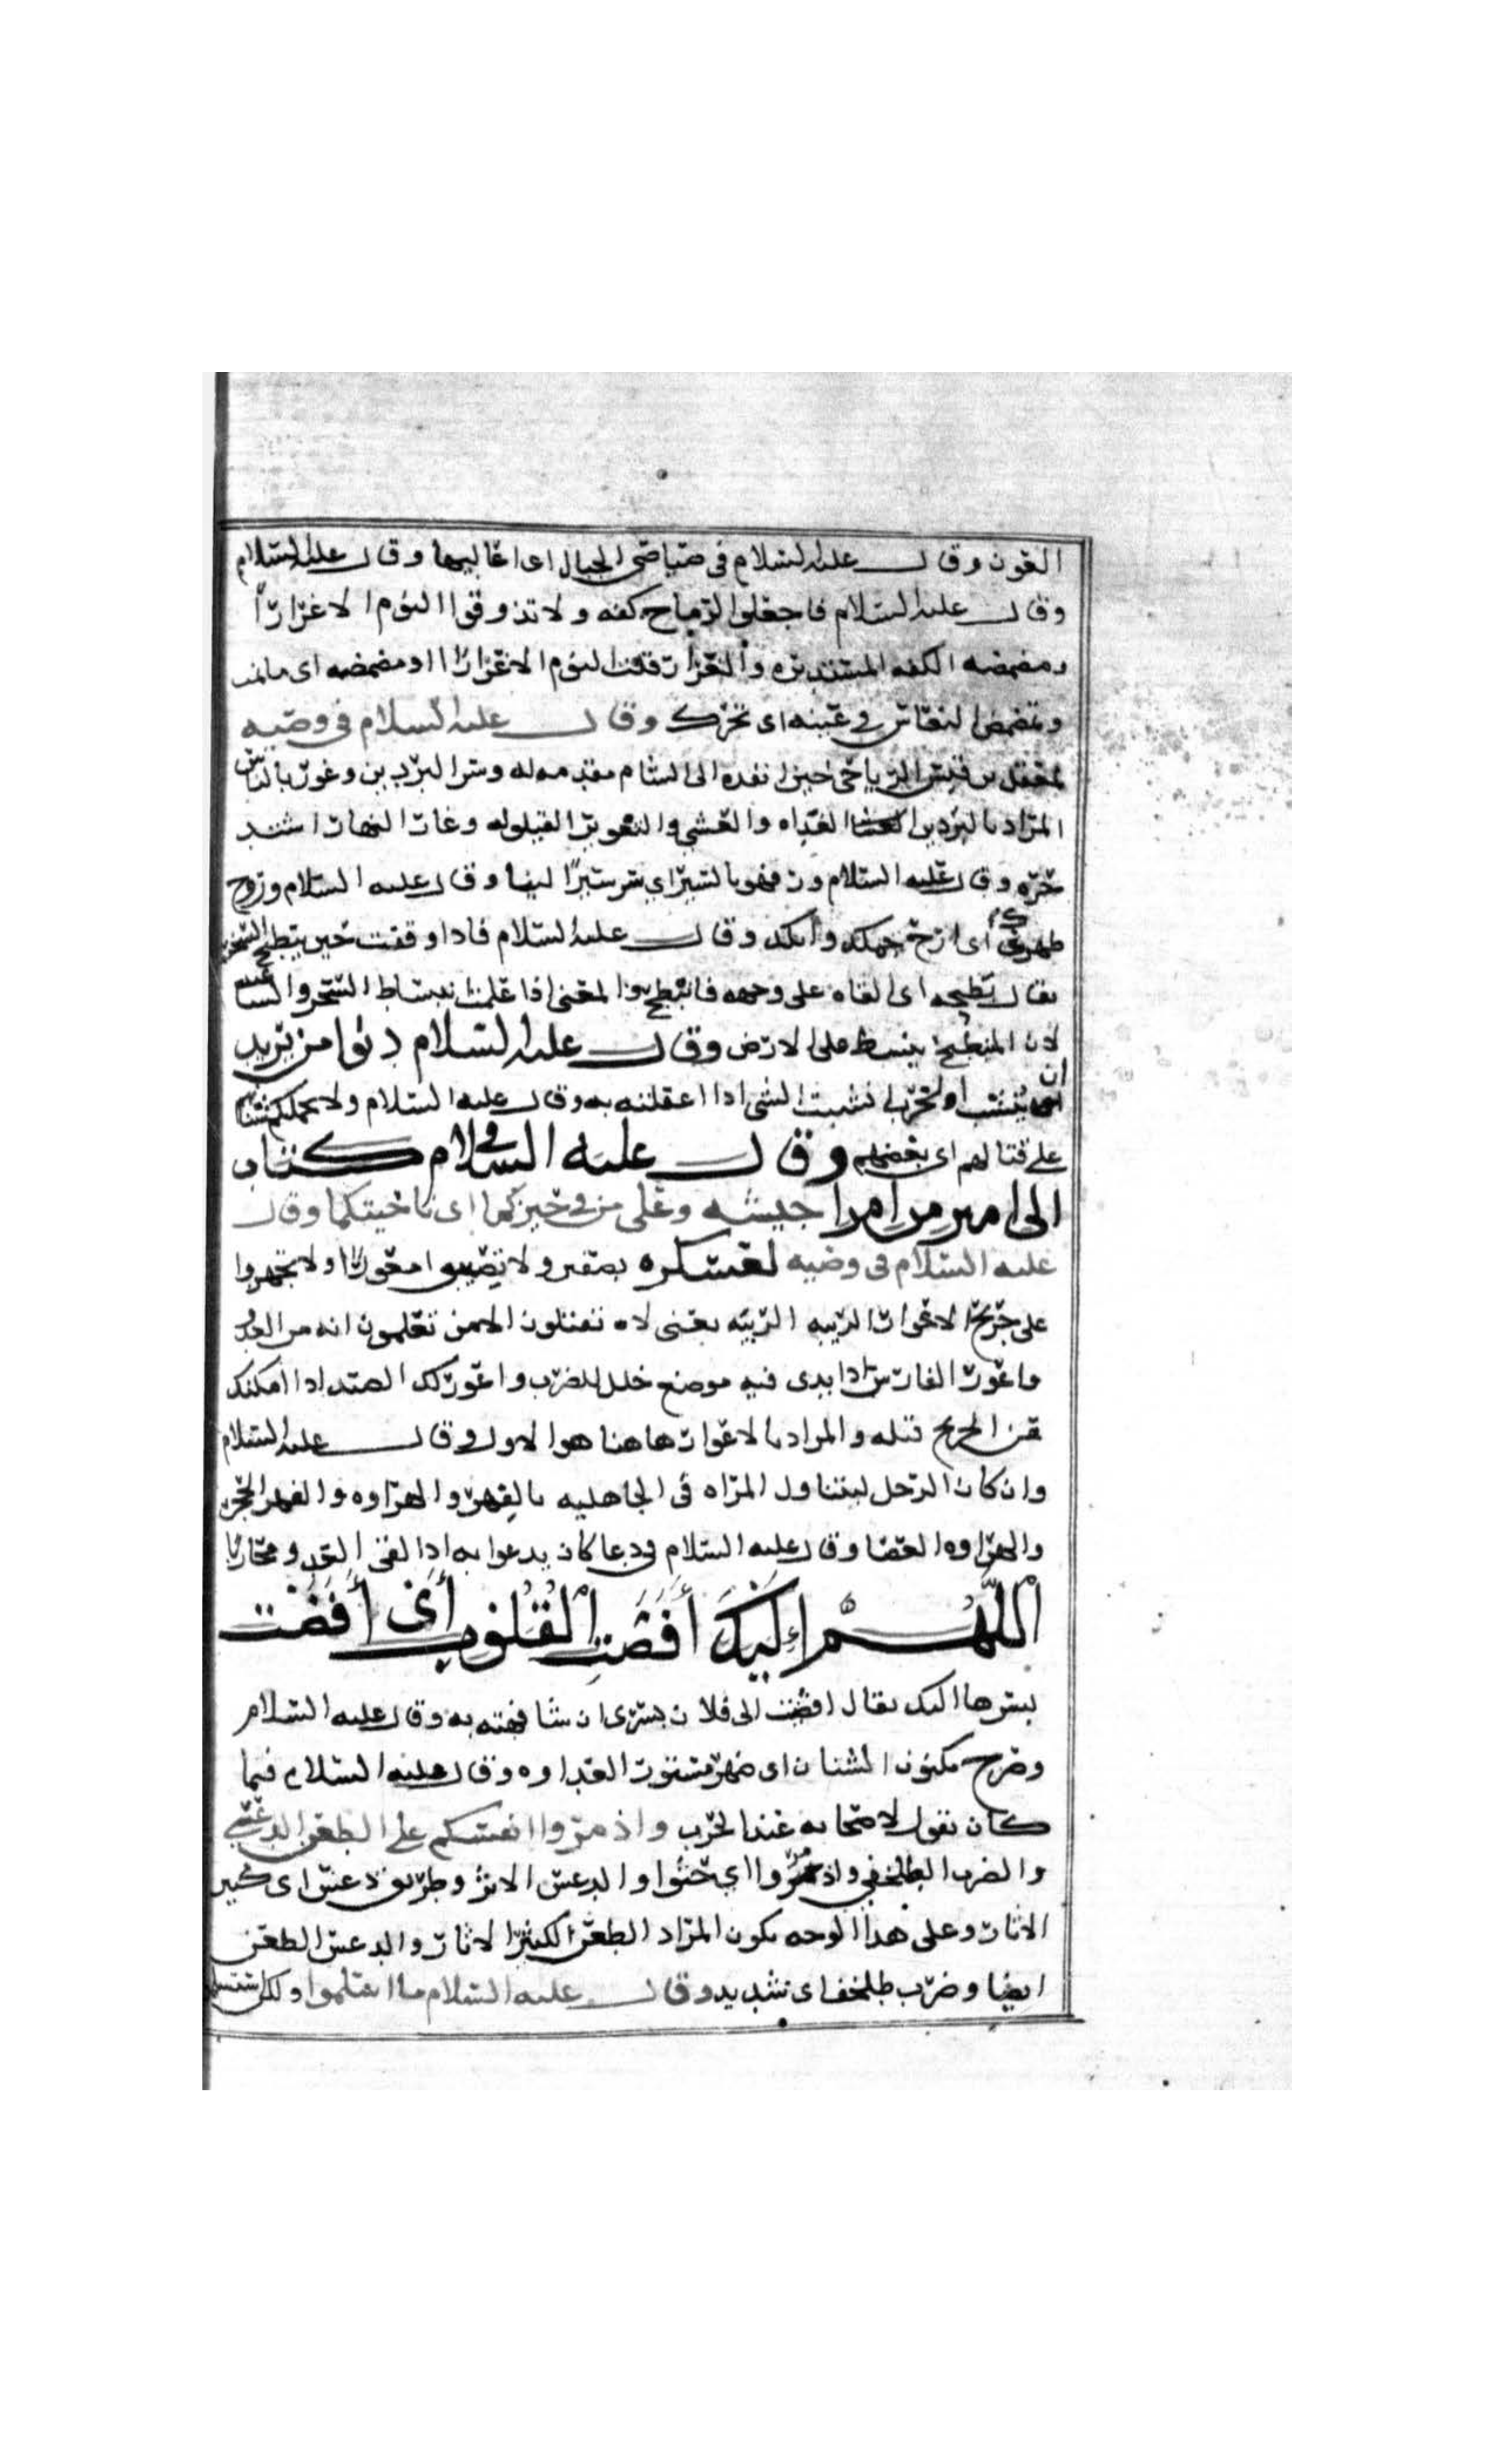 العون وقال عليه السلام في صياصي الجبال اى اعاليها وقال عليه السلام
وقال عليه السلام فاجعلوا الرماح كفه ولا تذوقوا النوم الا غرارًا
ومضمضه الكفه المستديره والغرار قله النوم الا غرارًا او مضمضه اى
وتمضمض النعاس في عينه اى تحرك وقال عليه السلام في وصيه
لمعقل بن قيس الرياحى حين انفده الى الشام مقدمه له وسر البردين وغور بالناس
المراد بالبردين الغداه والعشي والتغوير القيلوله وغار النهار اشتد
حره وقال عليه السلام ورفه بالسير اي سر سيرًا لينا وقال عليه السلام وروح
ظهرك اى ارح جملك وقال عليه السلام فاذا وقفت حين ينبطح السحر
يقال بطحه اى القاه على وجهه فانبطح المعنى اذا علمت انبساط السحر
لان المنبطح ينبسط على الارض وقال عليه السلام دنوا من يريد
ان ينشب الحرب نشبت الشى اذا اعقلته به وقال عليه السلام ولا يحملكم شنانهم
على قتالهم اى بغضهم وقال عليه السلام في كتاب
الى امير من امرا جيشه وعلى من في حيزكما اى ناحيتكما وقال
عليه السلام في وصيه لعسكره بصفين ولا تصيبوا معورًا ولا تجهزوا
على جريح الاعوار الريبه يعنى لا تقتلون الا من تعلمون انه من العدو
واعور الفارس اذا بدى فيه موضع خلل للضرب واعور لك الصيد اذا امكنك
الجريح قتله والمراد بالاعوار هاهنا هو الاول وقال عليه السلام
وان كان الرجل ليتناول المراه في الجاهليه بالفهر والهراوه والفهر الحجر
والهراوه العصا وقال عليه السلام في دعا كان يدعوا به اذا لقى العدو محاربًا
اَللّٰهُمَّ إِلَيْكَ أَفْضَتِ الْقُلُوبُ أَىْ أَفْضَتْ
بسرها اليك يقال افضيت الى فلان بسرى ان شافهته به وقال عليه السلام
وصرح مكنون الشنان اى ظهر مستور العداوه وقال عليه السلام فيما
كان يقول لاصحابه عند الحرب واذمروا انفسكم على الطعن الدعسي
والضرب الطلخفي واذمروا اي حثوا والدعس الاثر وطريق دعس اى كثير
الاثار وعلى هذا الوجه يكون المراد الطعن الكثير الاثار والدعس الطعن
ايضا وضرب طلخف اى شديد وقال عليه السلام ما اسلموا ولكن استسلموا